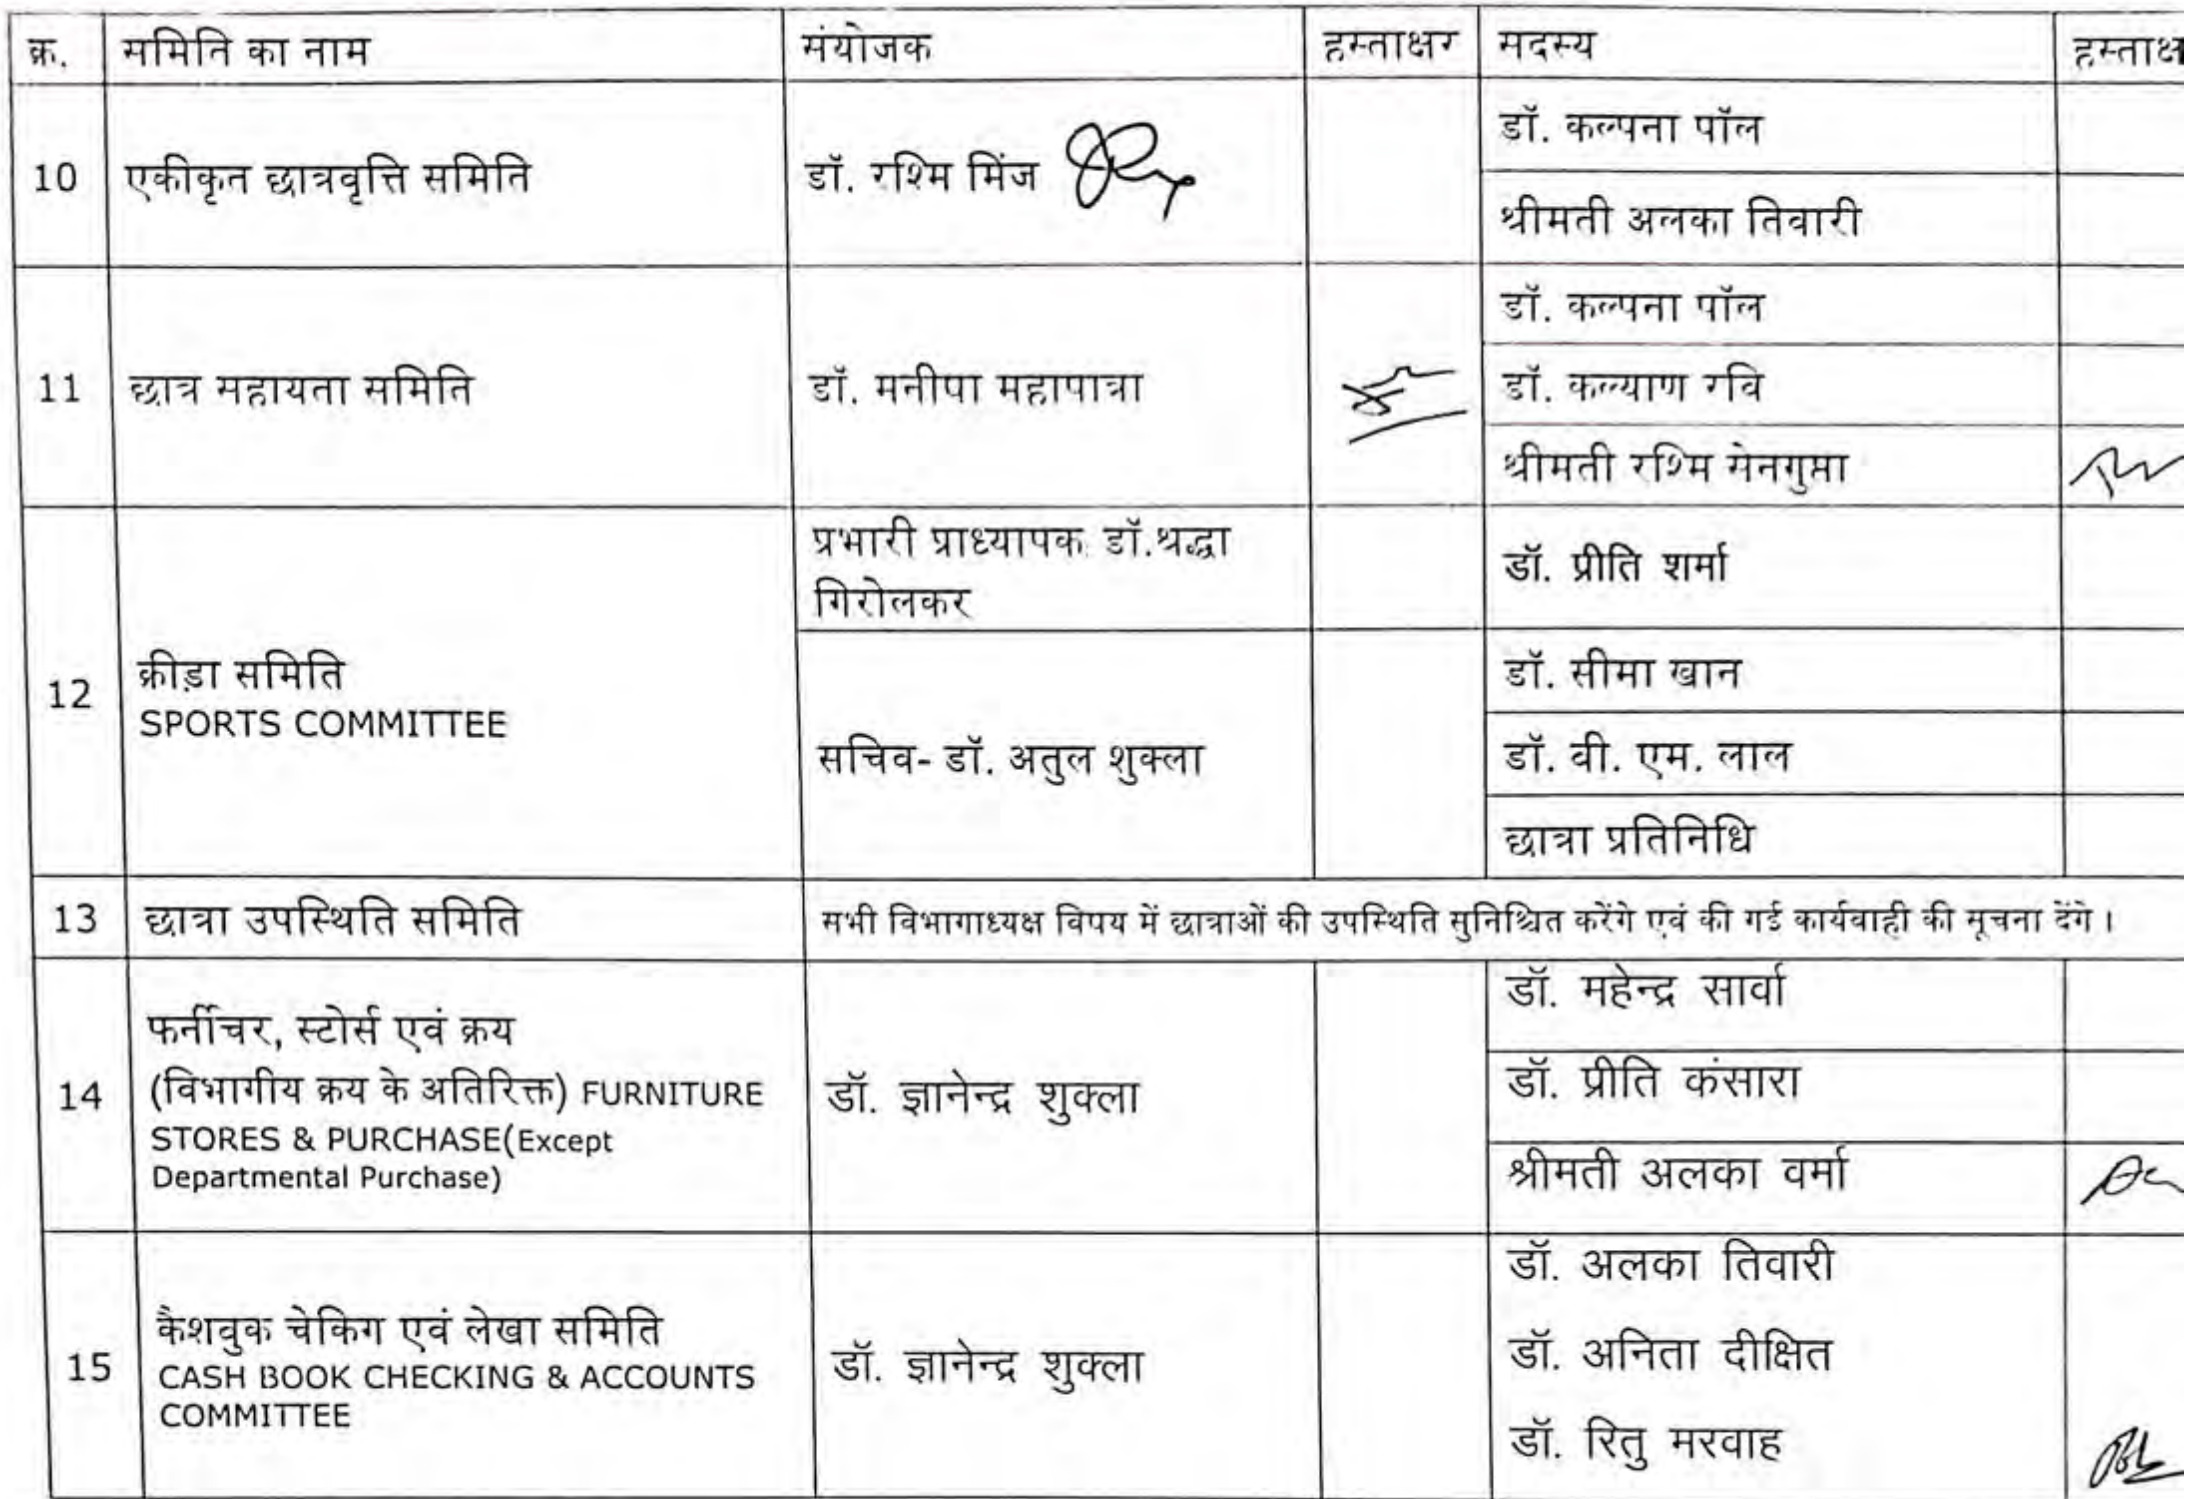 क्र. समिति का नाम संयोजक हस्ताक्षर सदस्य हस्ताक्ष
10 एकीकृत छात्रवृत्ति समिति डॉ. रश्मि मिंज डॉ. कल्पना पॉल
श्रीमती अलका तिवारी
11 छात्र सहायता समिति डॉ. मनीषा महापात्रा डॉ. कल्पना पॉल
डॉ. कल्याण रवि
श्रीमती रश्मि सेनगुप्ता
12 क्रीड़ा समिति
SPORTS COMMITTEE
प्रभारी प्राध्यापक डॉ.श्रद्धा
गिरोलकर
डॉ. प्रीति शर्मा
सचिव- डॉ. अतुल शुक्ला
डॉ. सीमा खान
डॉ. वी. एम. लाल
छात्रा प्रतिनिधि
13 छात्रा उपस्थिति समिति सभी विभागाध्यक्ष विषय में छात्राओं की उपस्थिति सुनिश्चित करेंगे एवं की गई कार्यवाही की सूचना देंगे।
14 फर्नीचर, स्टोर्स एवं क्रय
(विभागीय क्रय के अतिरिक्त) FURNITURE
STORES & PURCHASE(Except
Departmental Purchase)
डॉ. ज्ञानेन्द्र शुक्ला
डॉ. महेन्द्र सार्वा
डॉ. प्रीति कंसारा
श्रीमती अलका वर्मा
15 कैशबुक चेकिंग एवं लेखा समिति
CASH BOOK CHECKING & ACCOUNTS
COMMITTEE
डॉ. ज्ञानेन्द्र शुक्ला
डॉ. अलका तिवारी
डॉ. अनिता दीक्षित
डॉ. रितु मरवाह